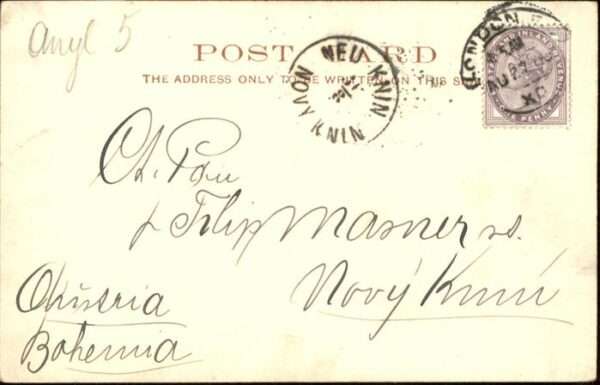 Angl 5
POST CARD
THE ADDRESS ONLY TO BE WRITTEN ON THIS SIDE
NEU KNIN
NOVÝ KNIN
LONDON
Ct. Pan
Filip Masner
Nový Knín
Austria
Bohemia